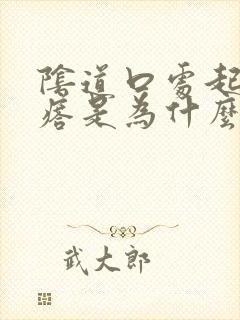 陰道口處起
痞是為什麼
武大郎